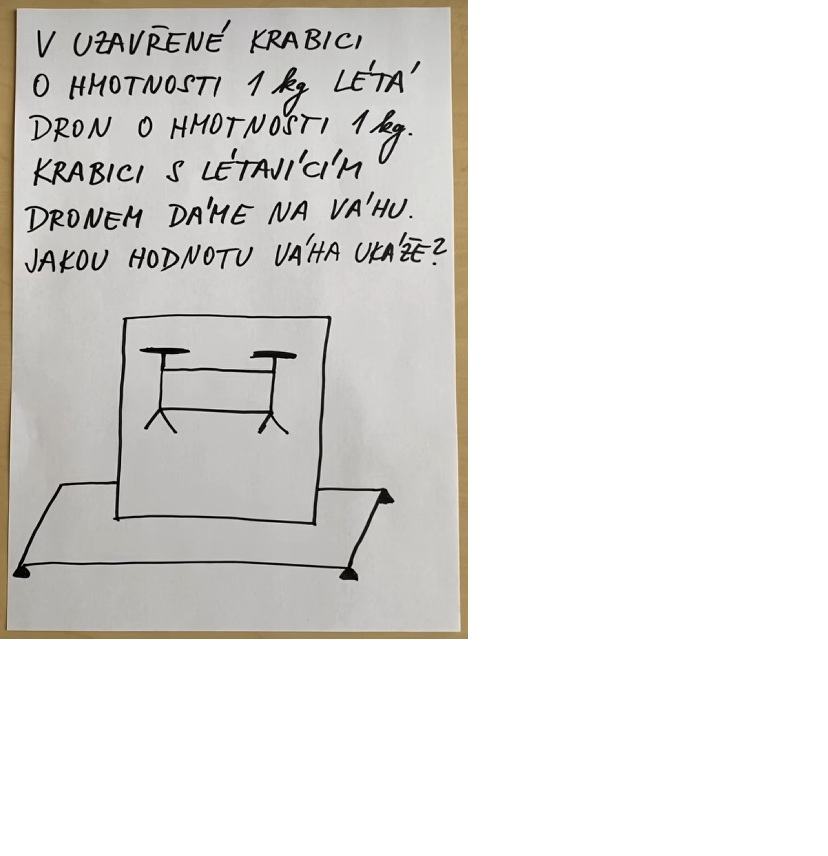 V UZAVŘENÉ KRABICI
O HMOTNOSTI 1 kg LÉTÁ
DRON O HMOTNOSTI 1 kg.
KRABICI S LÉTAJÍCÍM
DRONEM DÁME NA VÁHU.
JAKOU HODNOTU VÁHA UKÁŽE?